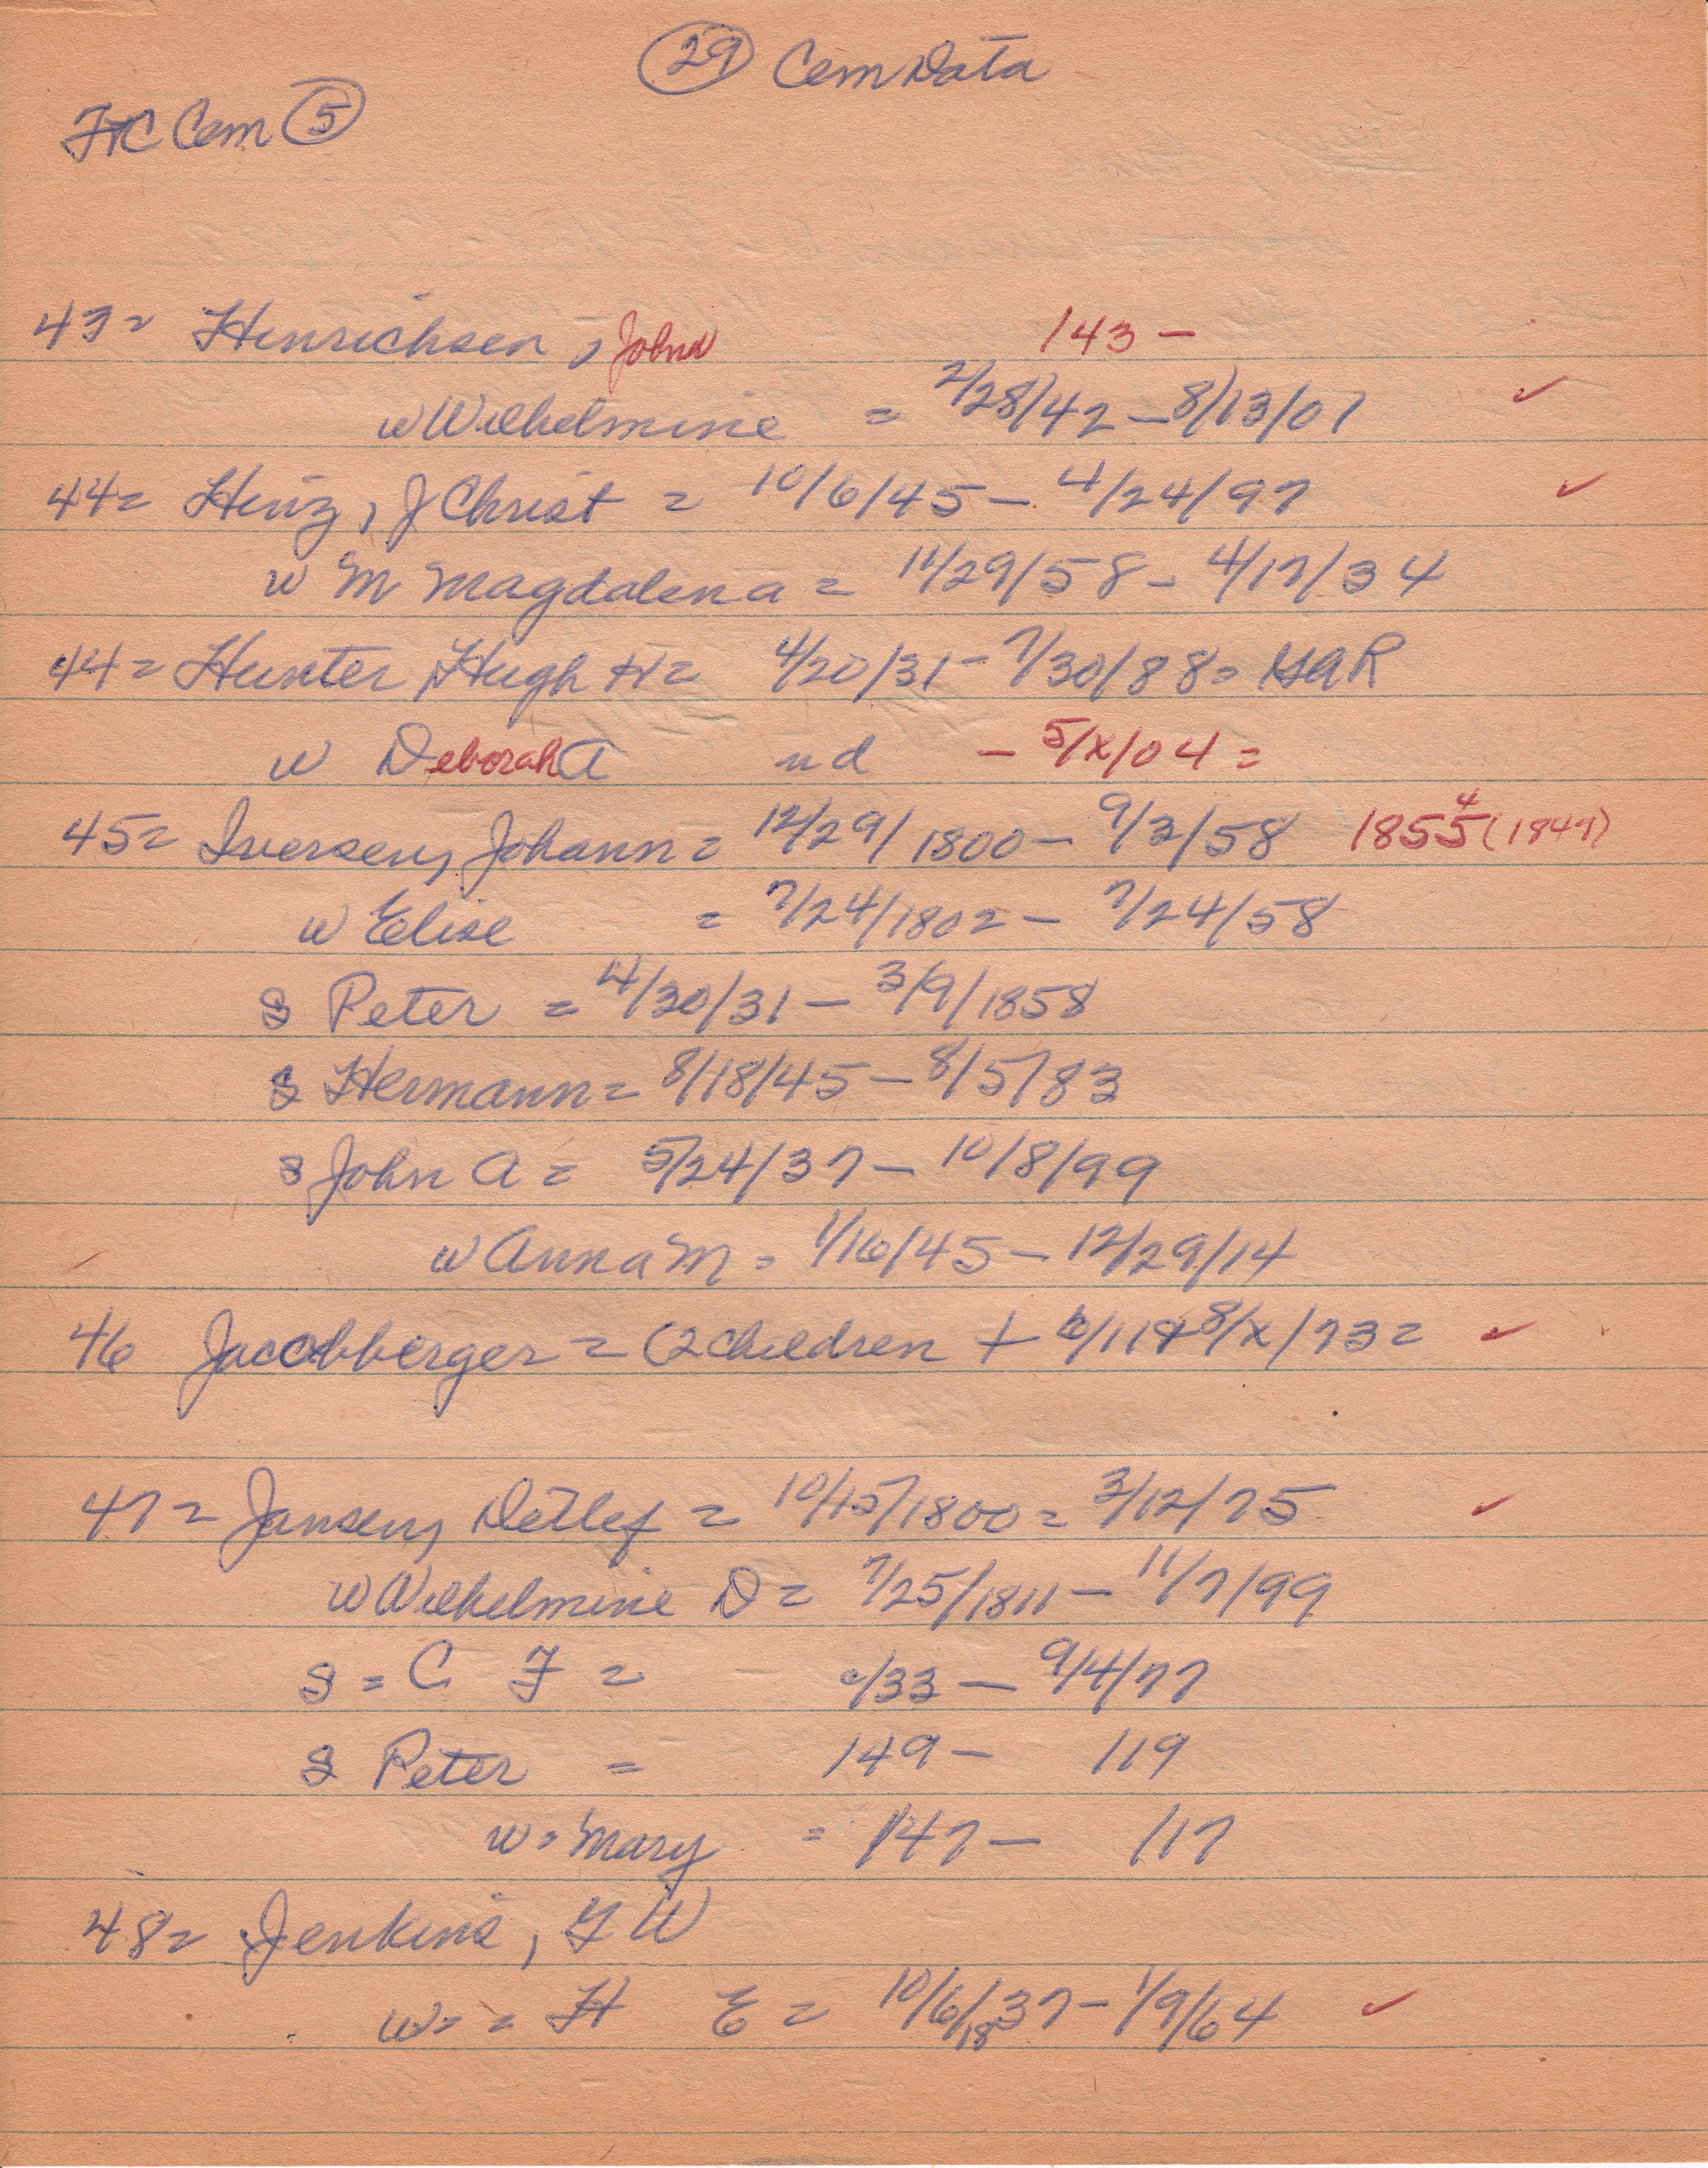 29 Cem Data
FTC Cem 5
43= Henrichsen, John /43 –
w Wilhelmine = 2/28/42 – 8/13/07 ✓
44= Hinz, J Christ = 10/6/45 – 4/24/97 ✓
w M Magdalena = 11/29/58 – 4/17/34
44= Hunter, Hugh H = 4/20/31 – 7/30/88 = GAR
w Deborah A nd – 5/x/04 =
45= Iversen, Johann = 12/29/1800 – 9/3/58 1855 4 (1847)
w Elise = 7/24/1802 – 7/24/58
s Peter = 4/30/31 – 3/9/1858
s Hermann = 8/18/45 – 8/5/83
s John A = 5/24/37 – 10/8/99
w Anna M = 1/16/45 – 12/29/14
46 Jacobberger = (2 children + 8/x/73 = ✓
47= Jansen, Detlef = 10/15/1800 = 3/12/75 ✓
w Wilhelmine D = 7/25/1811 – 11/7/99
s = C F = – /33 – 9/4/77
s Peter = /49 – /19
w = Mary = /47 – /17
48= Jenkins, G W
w = = H E = 10/6/1837 – 1/9/64 ✓